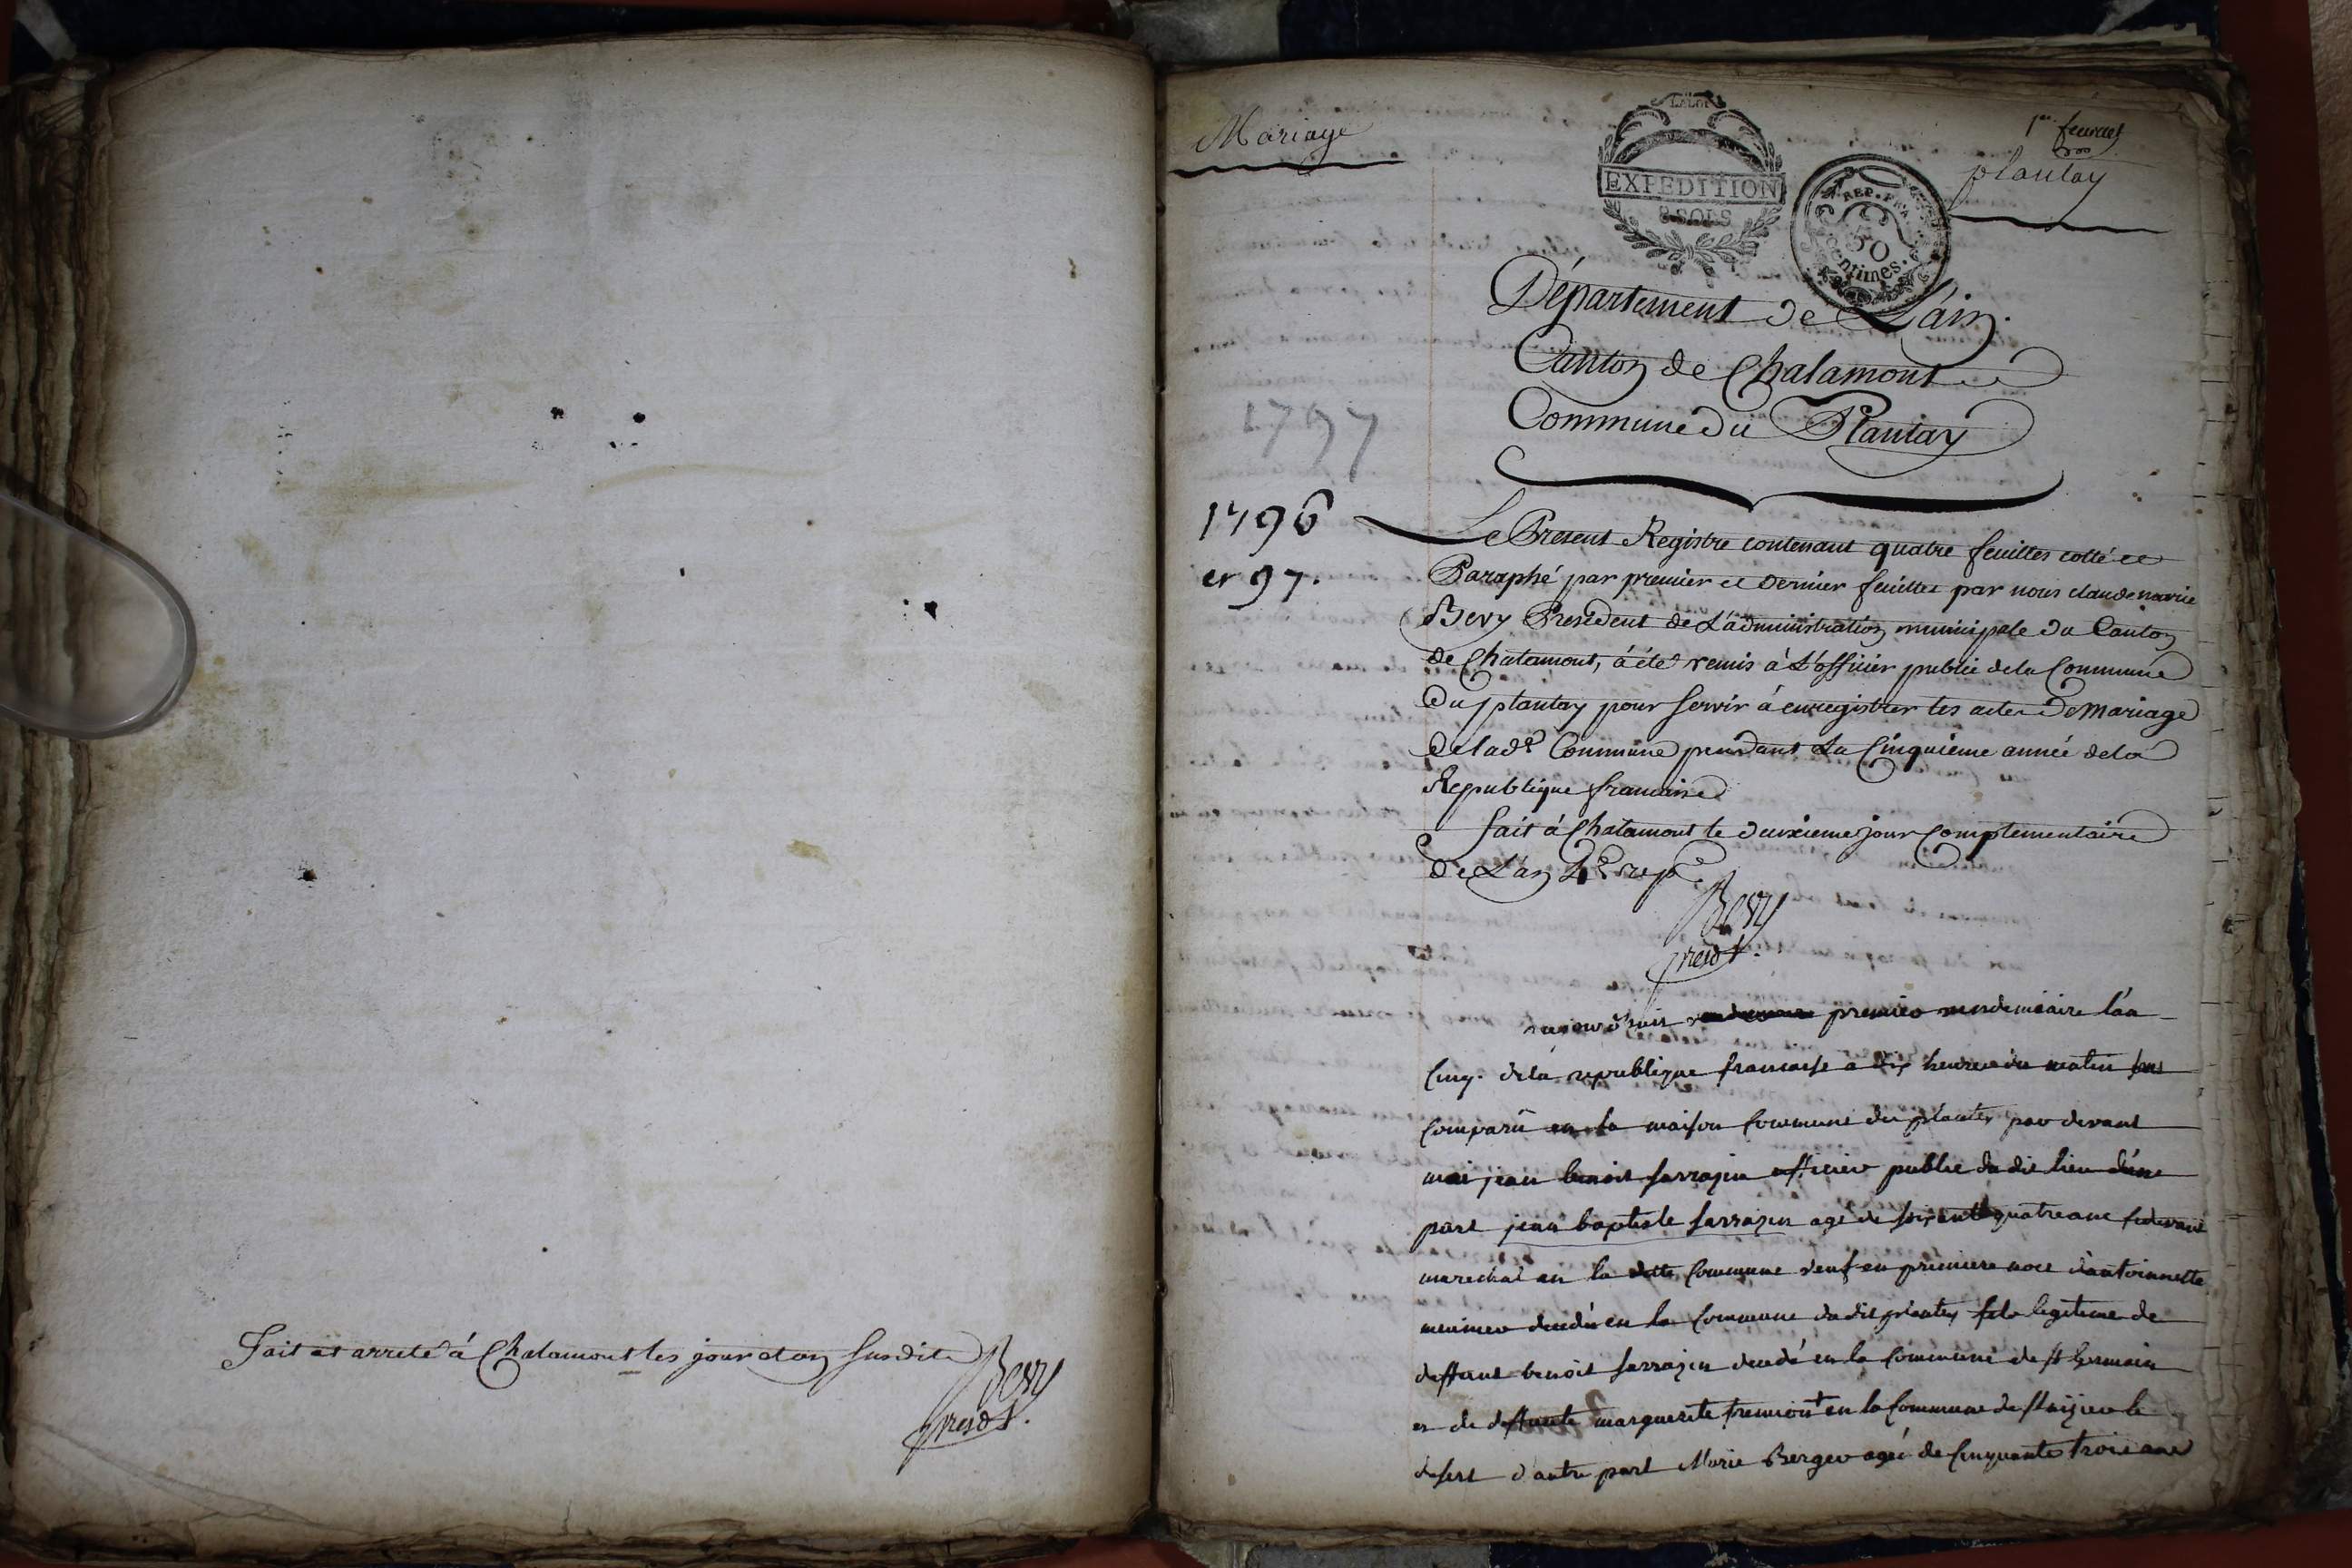 Fait et arreté á Chalamont les jour et an susdits
Bevy
presdt.
Mariage
LA LOI
EXPEDITION
8 SOLS
REP. FRA.
50
Centimes.
1er feuillet
plantay
Département de L'ain.
Canton de Chalamont
Commune du Plantay
1797
1796
et 97.
Le Present Registre contenant quatre feuilles cotté et
Paraphé par premier et dernier feuillet par nous claude marie
Bevy President de L'administration municipale du Canton
de Chalamont, á été remis á L'officier public de la Commune
du plantay pour servir á enregistrer les actes de mariage
de lade Commune pendant La Cinquieme année de la
Republique francaise
fait á Chalamont le deuxieme jour Complementaire
de L'an 4e rep.e
Bevy
presdt.
aujourd'huit premier vendemiaire l'an
Cinq. de la republique francaise a dix heures du matin
Comparû en la maison Commune du plantey par devant
moi jean benoit sarrazin officier public du dit lieu d'une
part jean baptiste sarrazin agé de soixante quatre ans
marechal en la ditte Commune veuf en premiere noce d'antoinnette
meunier decedé en la Commune du dit plantey fils legitime de
deffunt benoit sarrazin decedé en la Commune de st germain
et de deffunte marguerite en la Commune de le
desert d'autre part Marie Berger ageé de Cinquante trois ans